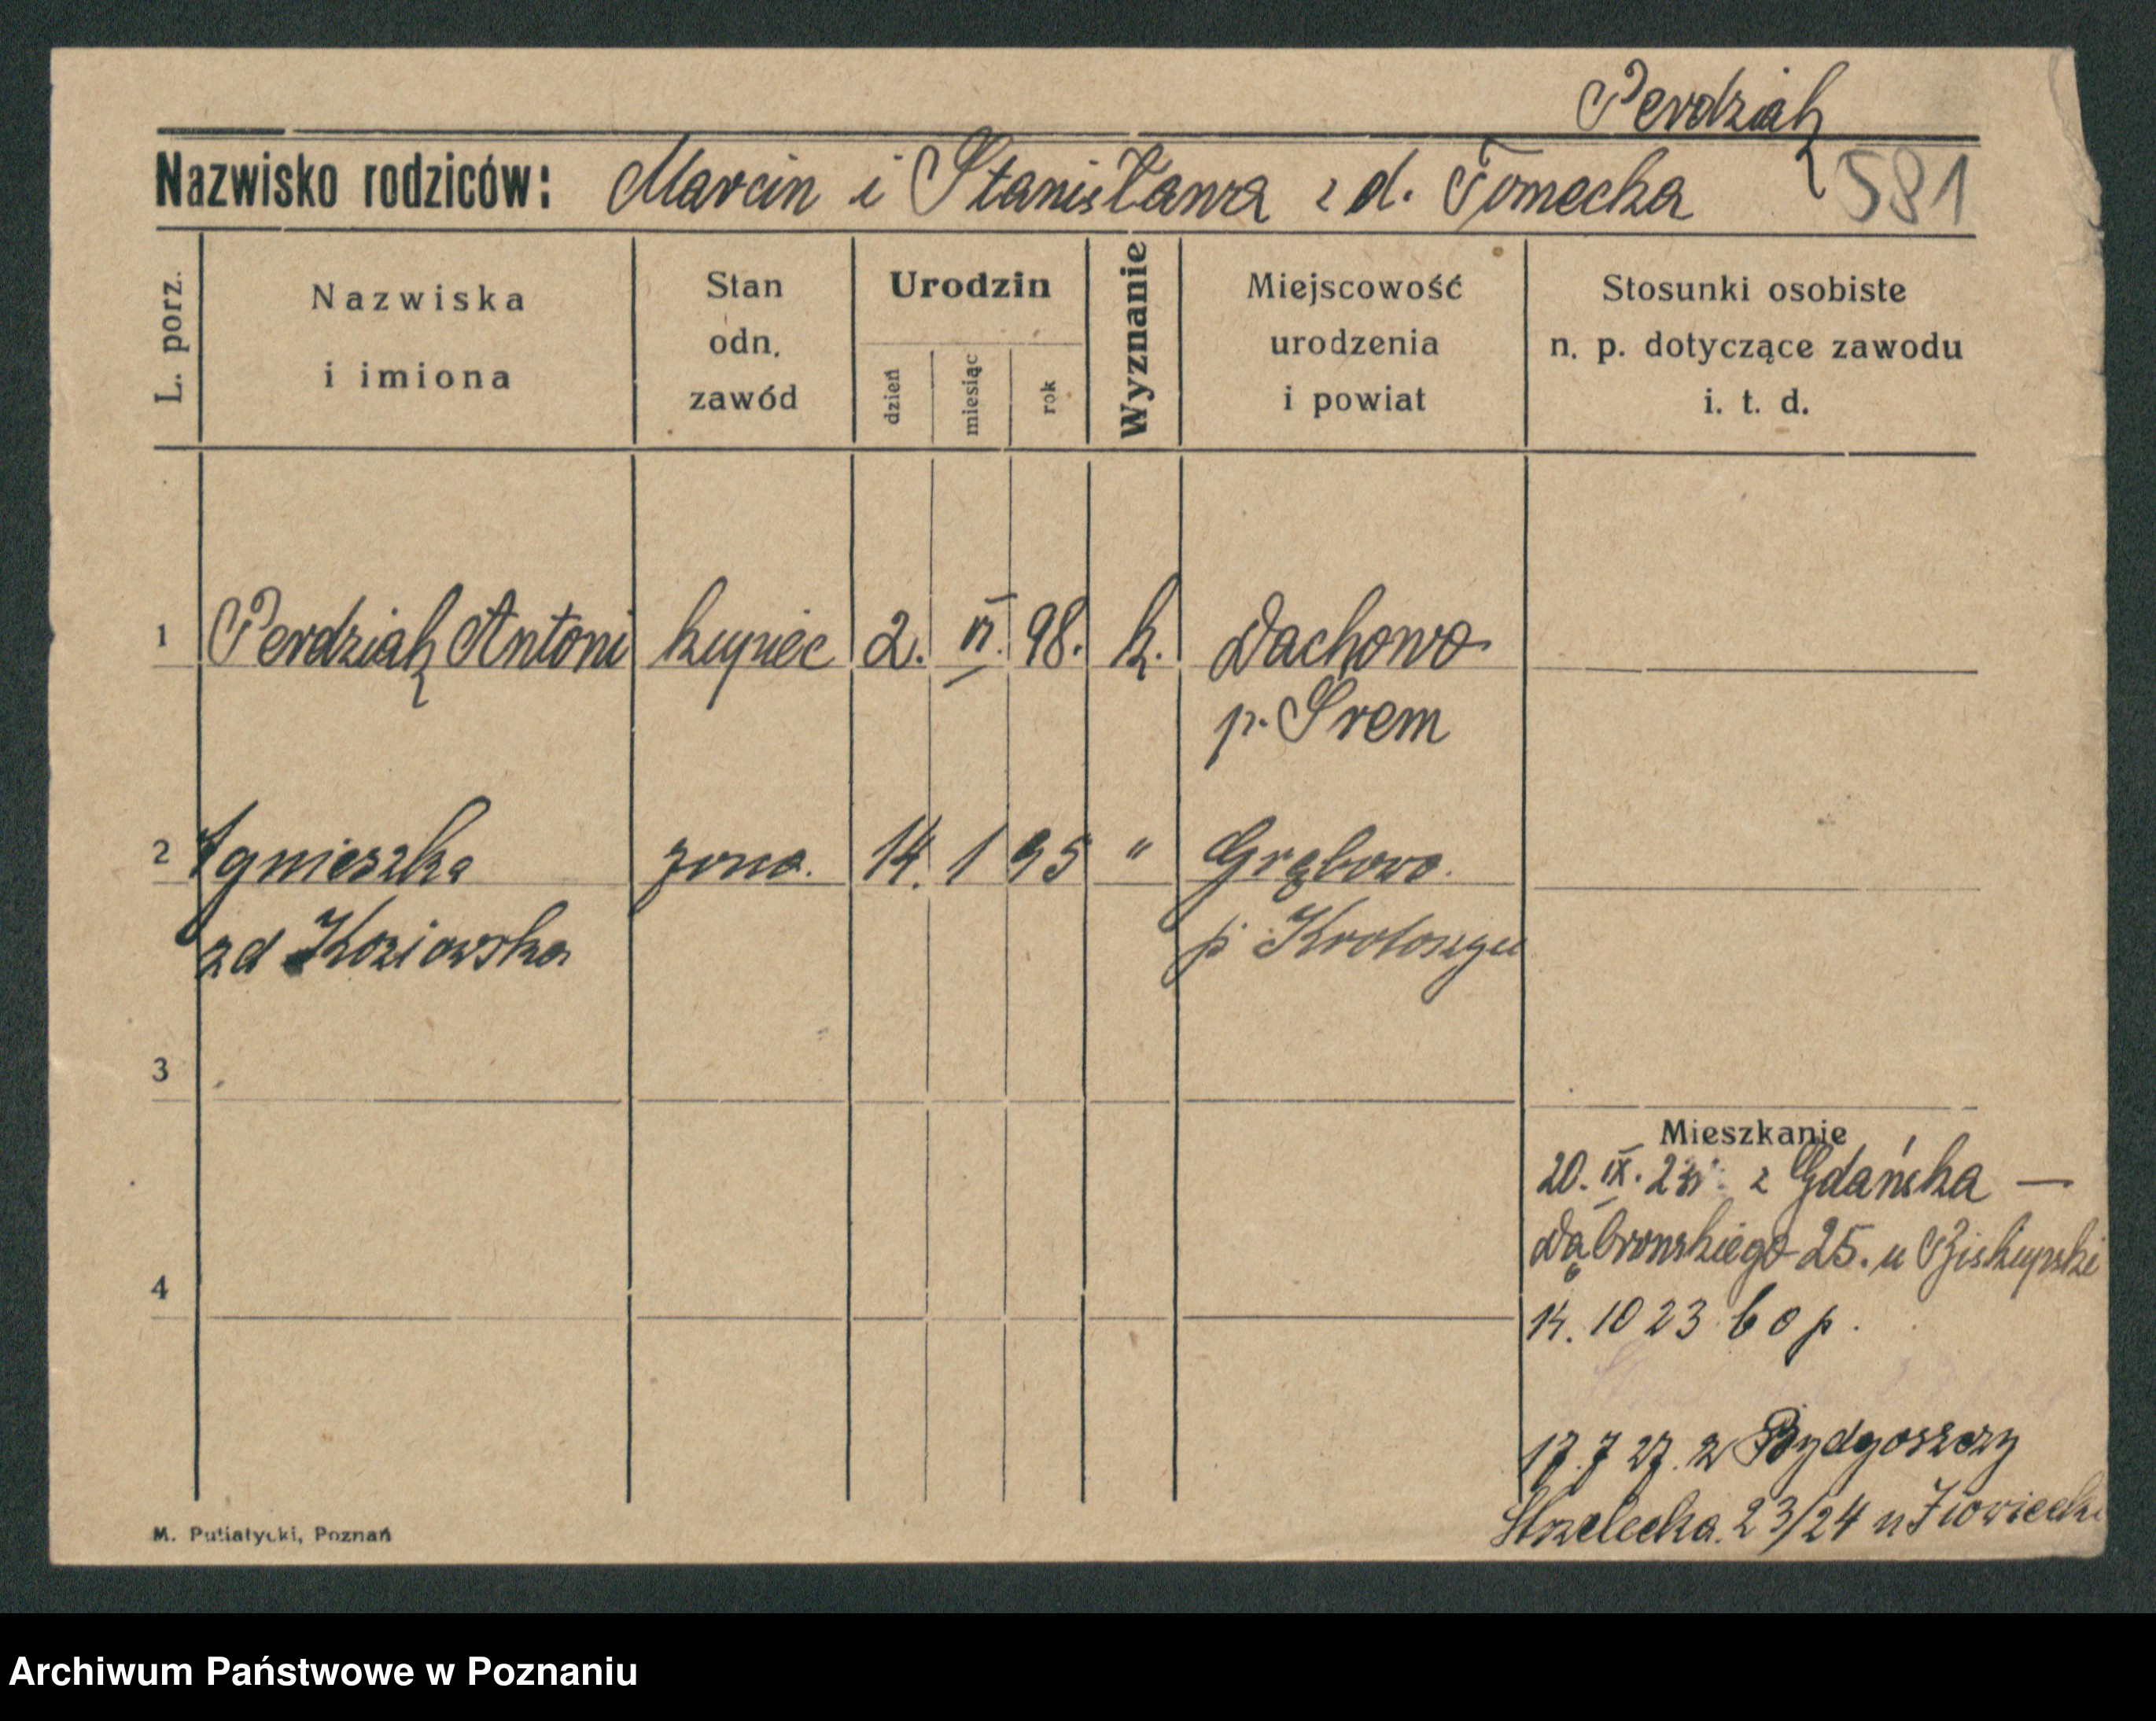 Perdziak
Nazwisko rodziców: Marcin i Stanisława z d. Tomecka 581
L. porz.
Nazwiska i imiona
Stan odn. zawód
Urodzin
dzień miesiąc rok
Wyznanie
Miejscowość urodzenia i powiat
Stosunki osobiste n. p. dotyczące zawodu i. t. d.
1 Perdziak Antoni kupiec 2. VI. 98. k. Dachowo
p. Srem
2 Agnieszka zona. 14. 1 95 " Grębowo.
zd Koziowska p Krotoszyn
3
Mieszkanie
20. IX. z Gdańska —
4
Dąbrowskiego 25. u Biskupski
14. 10 23 b o p.
17. 7 27. z Bydgoszczy
Strzelecka. 23/24 u
M. Putiatycki, Poznań
Archiwum Państwowe w Poznaniu